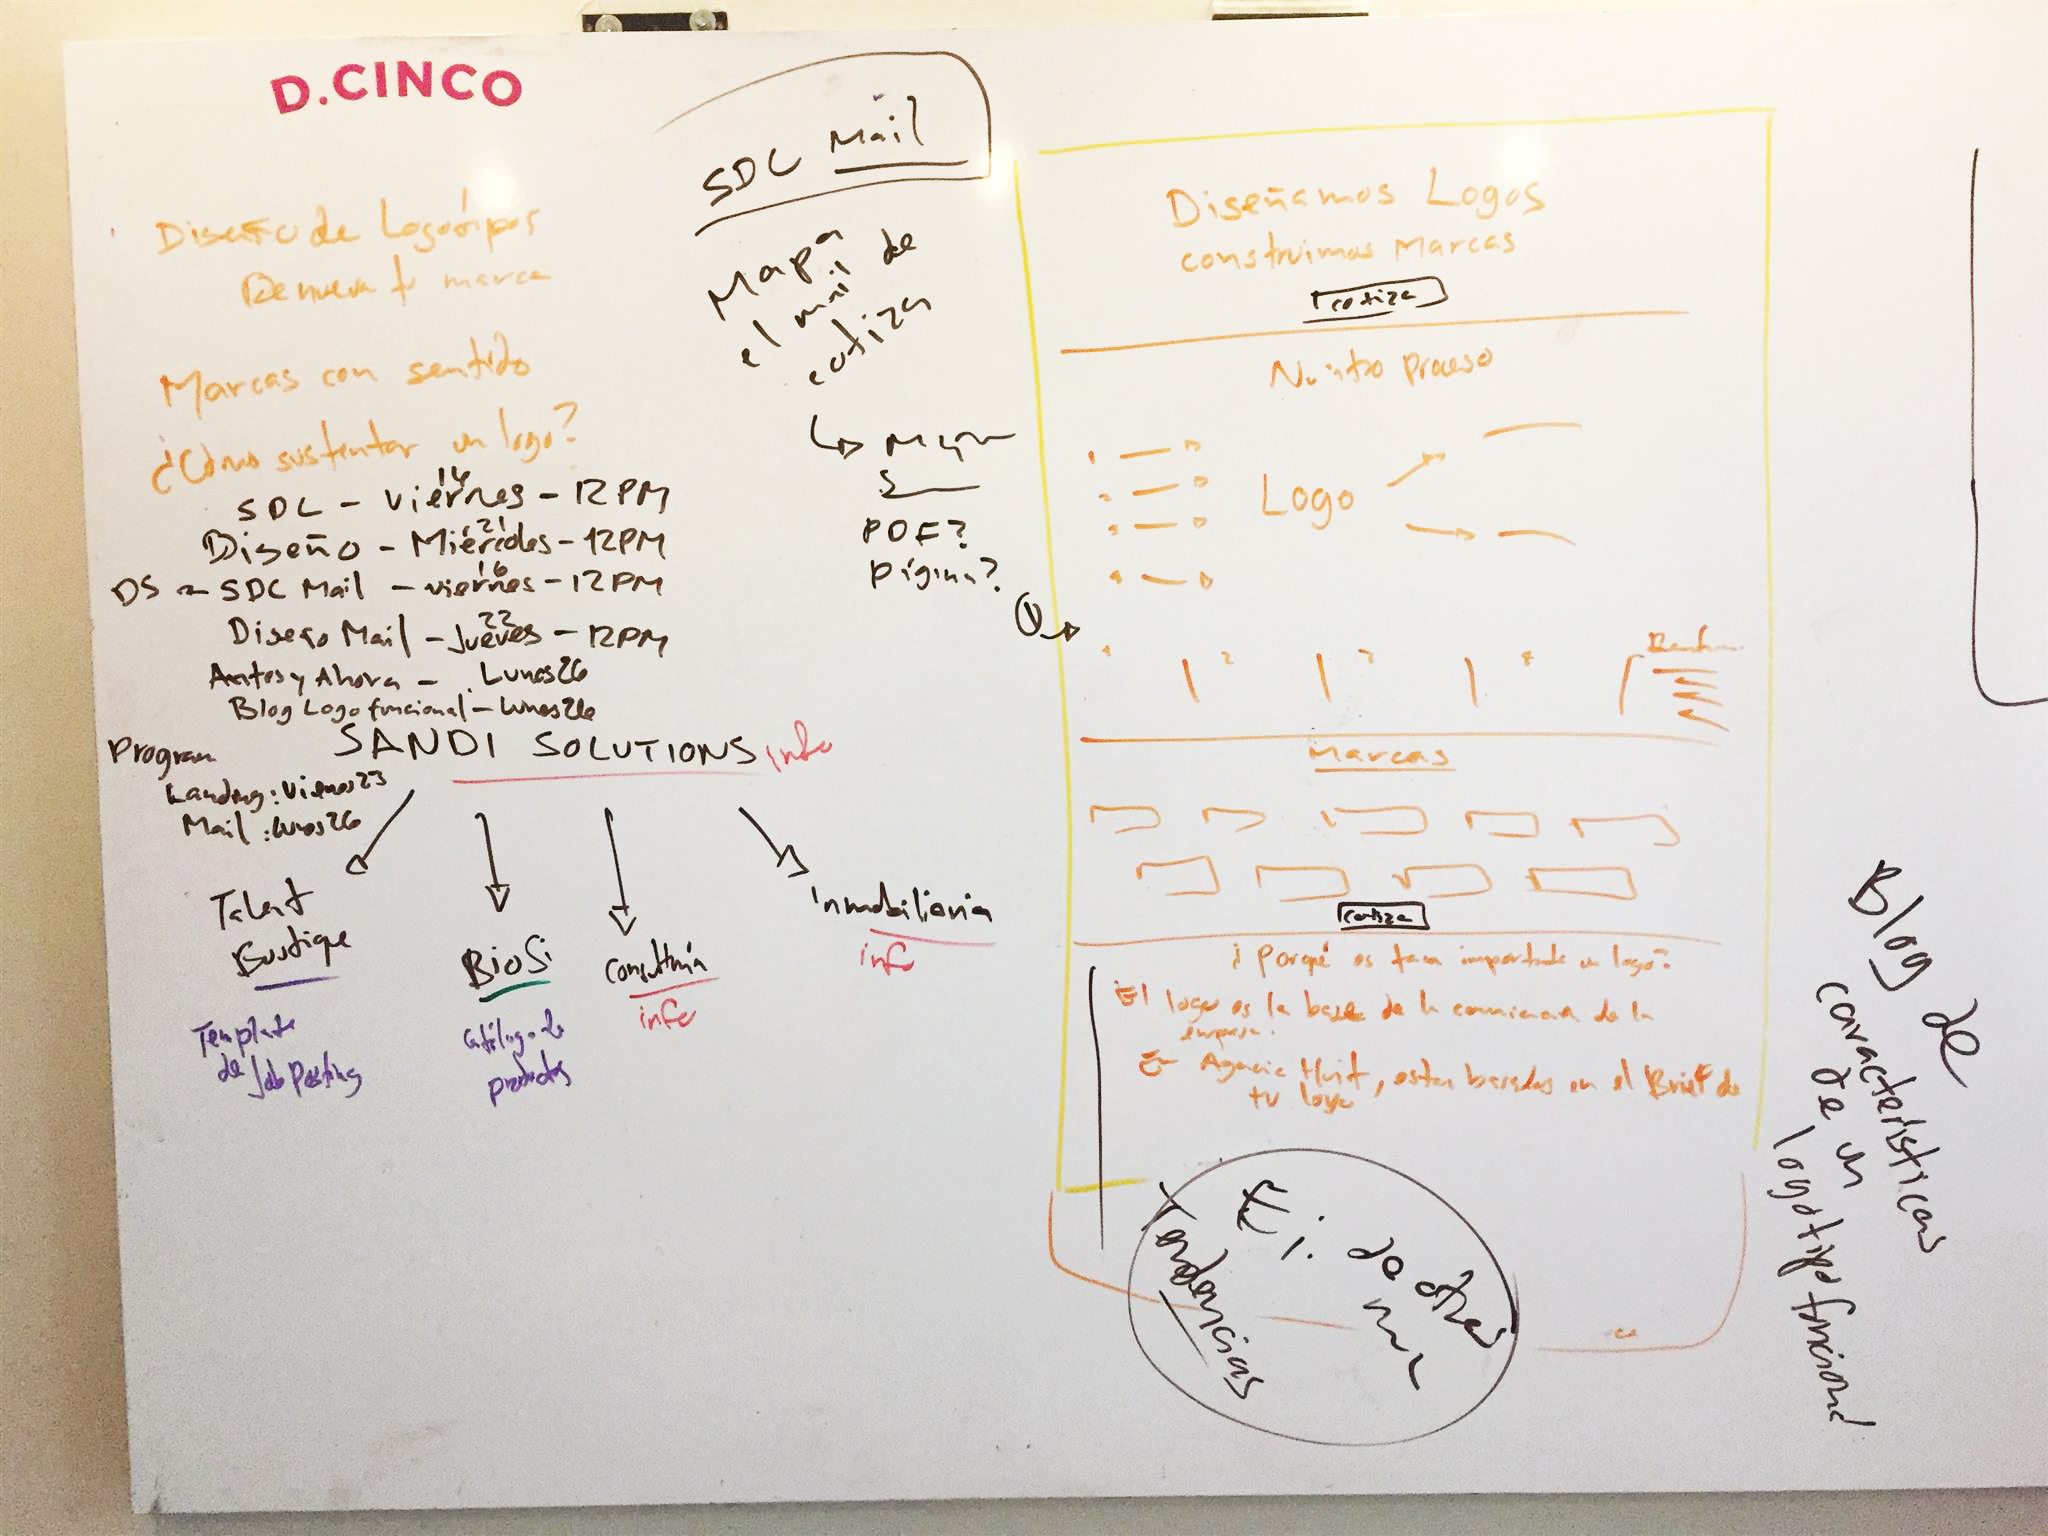 D.CINCO
Diseño de Logotipos
Renueva tu marca
Marcas con sentido
¿Cómo sustentar un logo?
SDC - Viernes 16 - 12PM
Diseño - Miércoles 21 - 12PM
DS SDC Mail - viernes 16 - 12PM
Diseño Mail - Jueves 22 - 12PM
Antes y Ahora - Lunes 26
Blog Logo funcional - Lunes 26
Program
Landing: Viernes 23
Mail: Lunes 26
SANDI SOLUTIONS info
Talent
Boutique
Template
de Job Posting
BioSi
Catálogo de
productos
Consultoría
info
Inmobiliaria
info
SDC Mail
Mapa
el mail de
cotiza
PDF?
Página?
1
Diseñamos Logos
construimos Marcas
cotiza
Nuestro proceso
1
2
3
4
Logo
1 2 3 4
Marcas
cotiza
¿Porqué es tan importante un logo?
El logo es la base de la de la
empresa.
En Agencia , estan basadas en el Brief de
tu logo
Ej. de otras
Tendencias
Blog de
características
de un
logotipo funcional